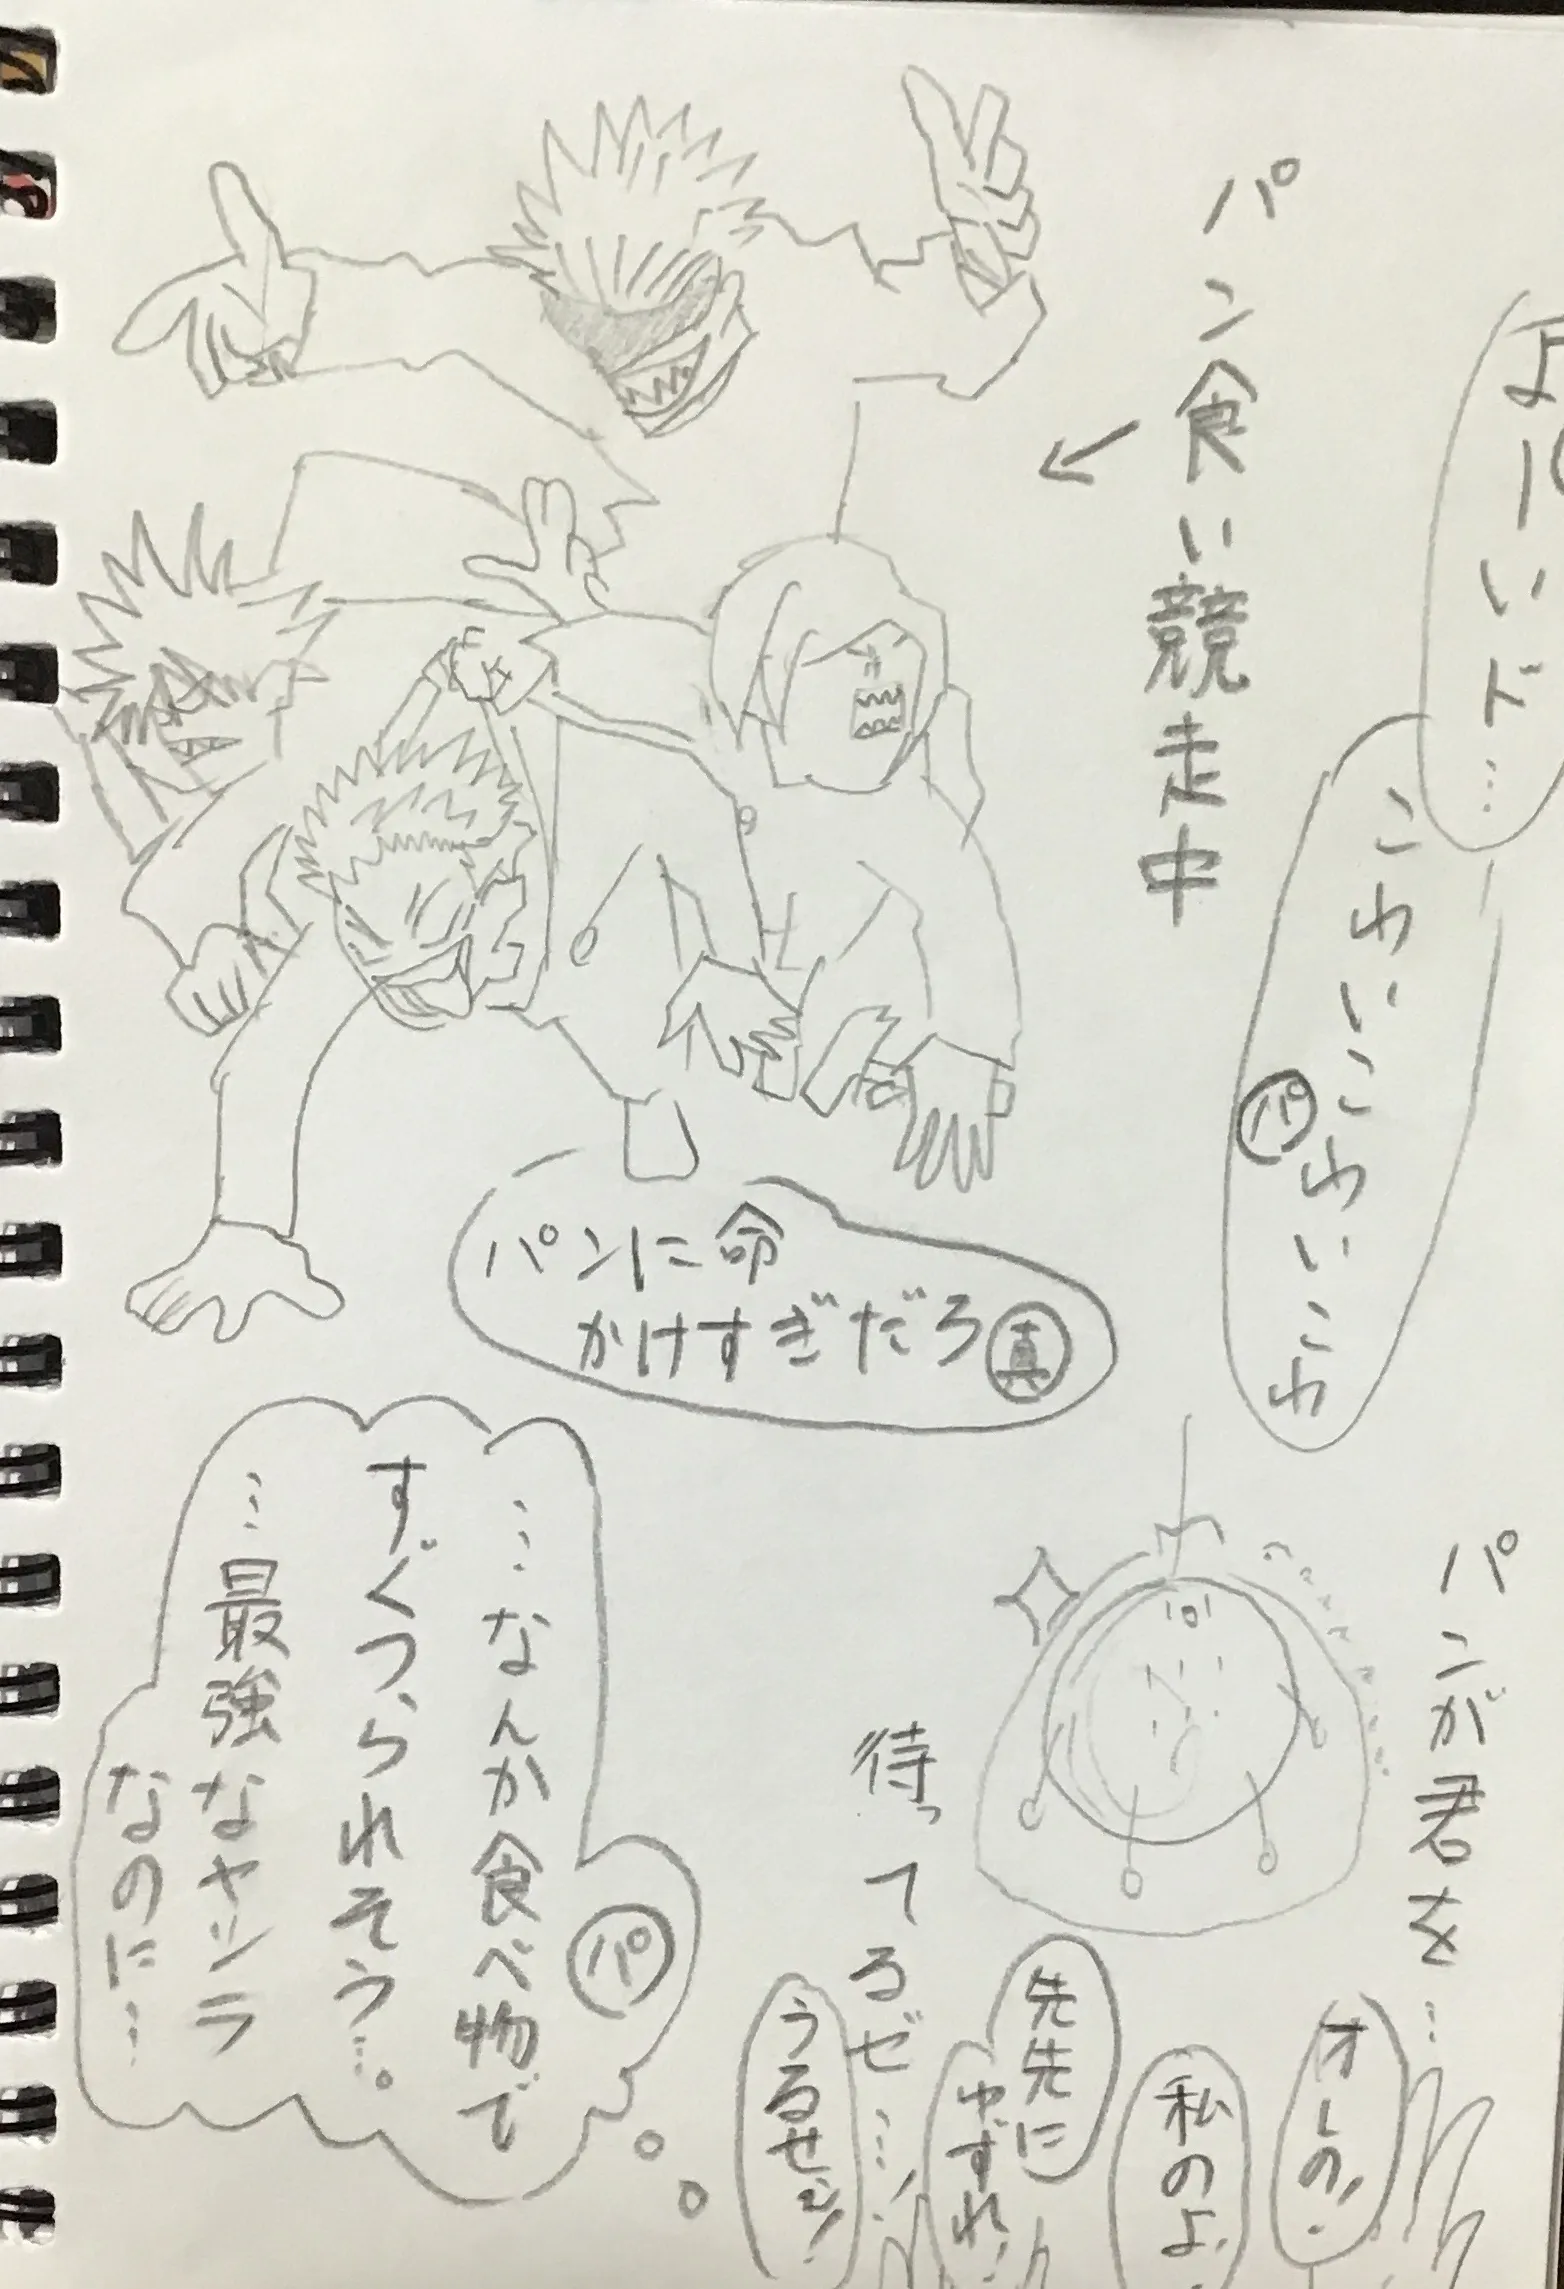 よーいド…
こわいこわいこわ
パ
パン食い競走中
パンに命
かけすぎだろ
真
パンが君を…
待ってるぜ…
オレの!
私のよ!
先生に
ゆずれ!
うるせぇ!
…なんか食べ物で
すぐつられそう…。
…最強なヤツラ
なのに…
パ